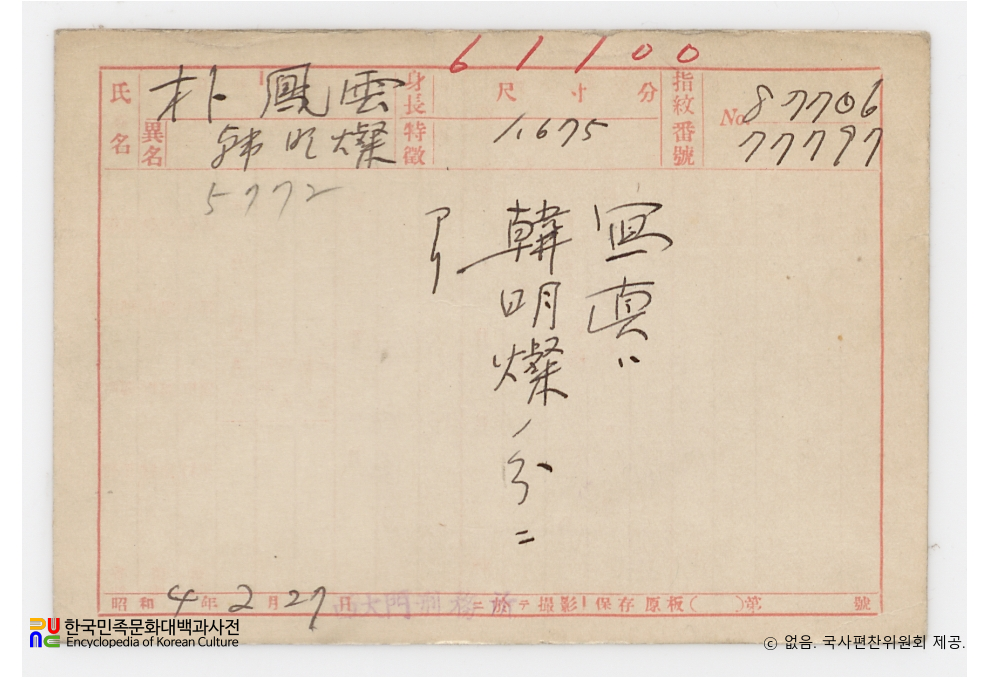 6 1 1 0 0
氏名 朴鳳雲
異名 韓明燦
身長 尺 寸 分
1.675
特徵
指紋番號 No 87706
77797
5772
寫眞ハ
韓明燦ノ分ニ
アリ
昭和 4年 2月 27日 西大門刑務所ニ於テ撮影 保存原板( )第 號
한국민족문화대백과사전
Encyclopedia of Korean Culture
ⓒ 없음. 국사편찬위원회 제공.